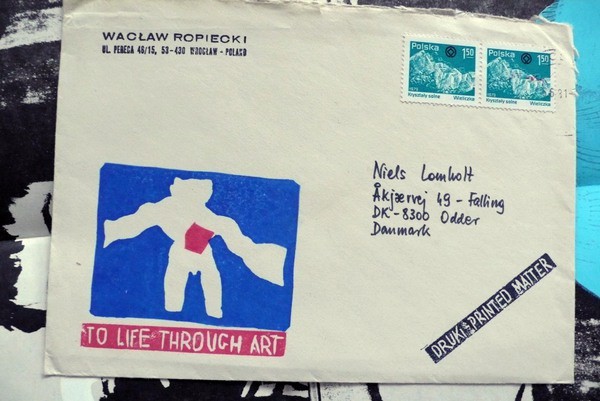 WACŁAW ROPIECKI
UL. PEREСA 46/15, 53-430 WROCŁAW - POLAND
Polska 1,50
1979
Kryształy solne Wieliczka
Polska 1,50
1979
Kryształy solne Wieliczka
Niels Lomholt
Åkjærvej 49 - Falling
DK-8300 Odder
Danmark
TO LIFE THROUGH ART
DRUKI=PRINTED MATTER